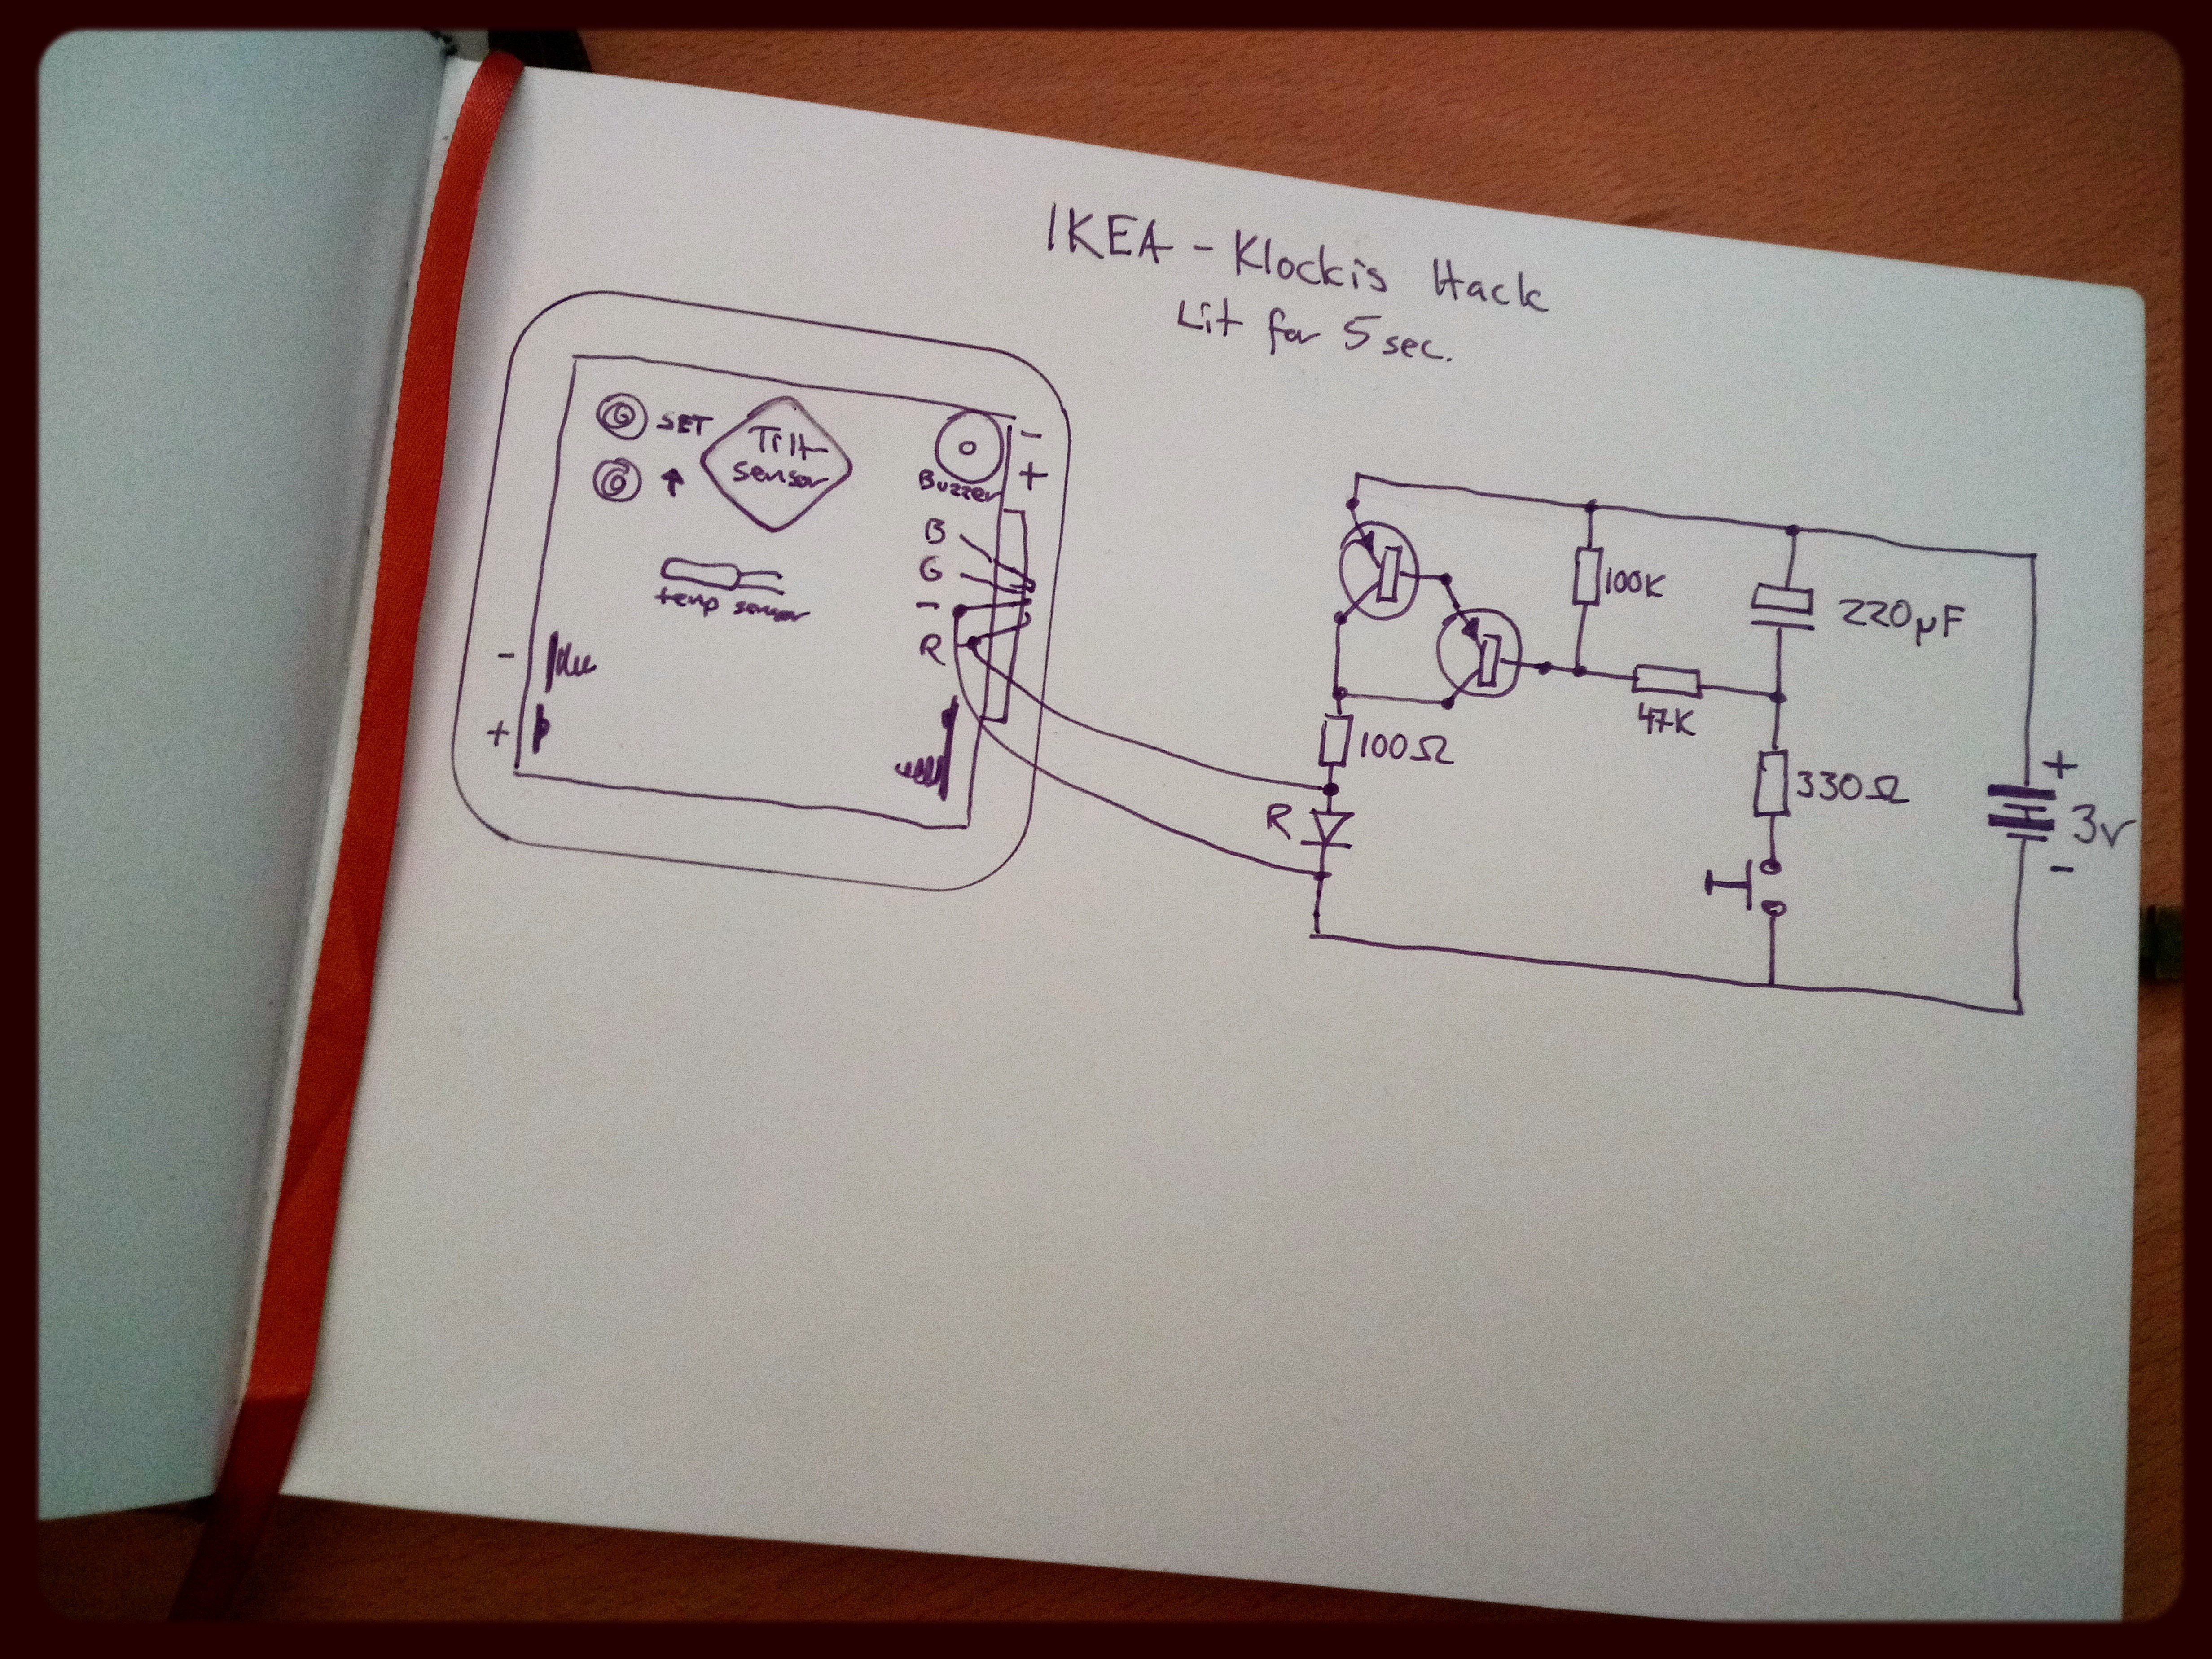 IKEA - Klockis Hack
Lit for 5 sec.
SET
↑
Tilt
sensor
Buzzer
-
+
B
G
-
R
temp sensor
-
+
100K
220µF
47K
100Ω
330Ω
R
+
3v
-